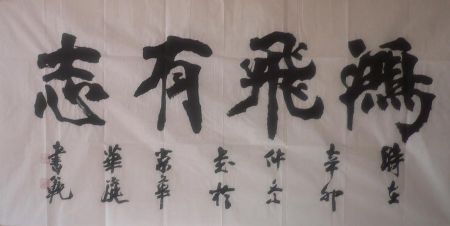 鴻飛有志
時在
辛卯
仲冬
書於
京華